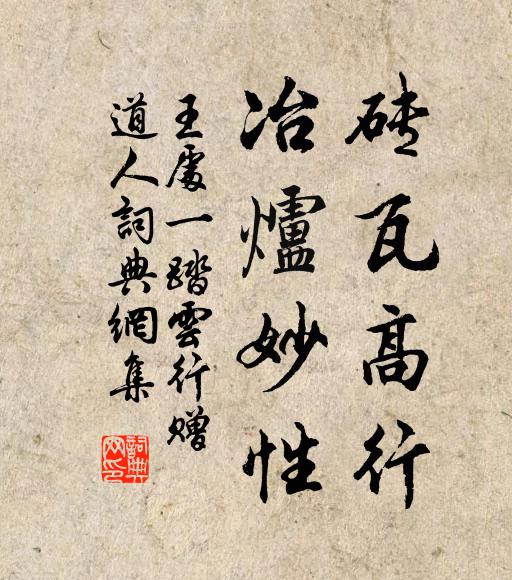 砖瓦高行
冶爐妙性
王處一踏雲行赠
道人詞典網集
詞典网印